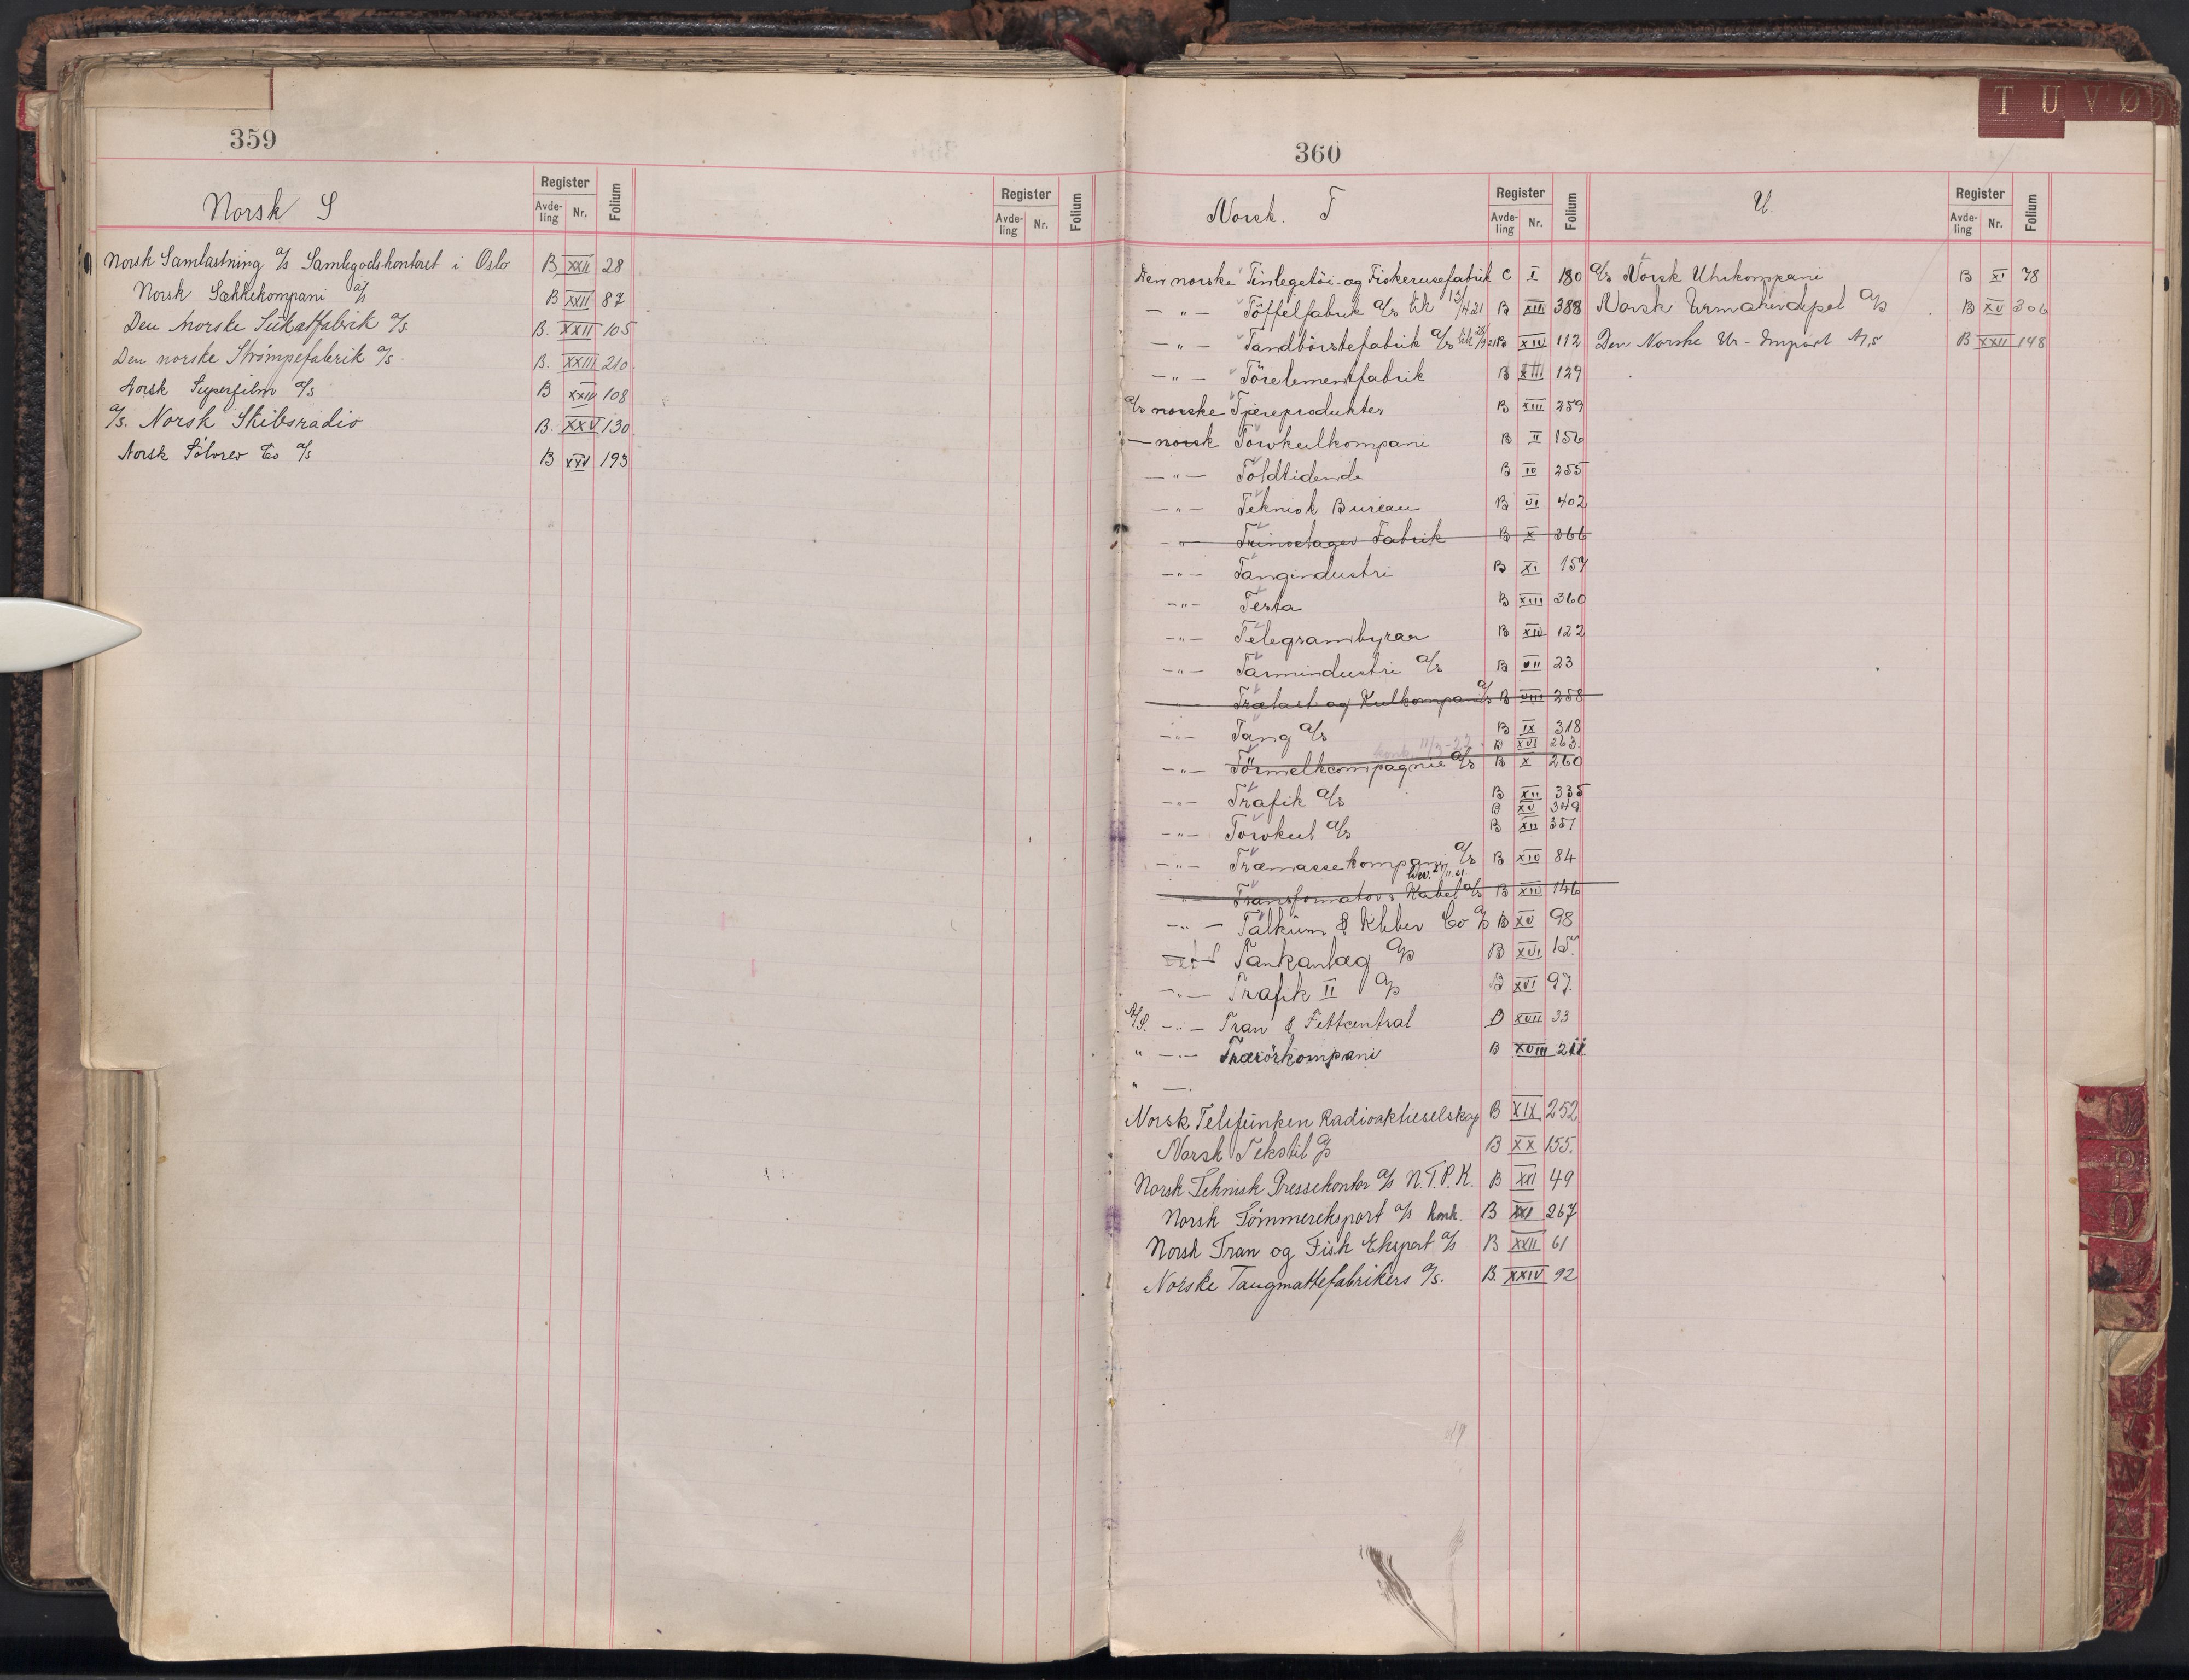 359
Norsk S
Register
Avde-ling Nr. Folium
Register
Avde-ling Nr. Folium
Norsk Samlastning a/s Samlegodskontoret i Oslo B XXII 28
Norsk Sækkekompani a/s B XXII 87
Den Norske Sukatfabrik a/s B. XXII 105
Den norske Strømpefabrik a/s. B. XXIII 210
Norsk Superfilm a/s B XXIV 108
a/s. Norsk Skibsradio B. XXV 130
Norsk Sölvrev Co a/s B XXV 193
T U V Ø
360
Norsk. T
Register
Avde-ling Nr. Folium
Den norske Tinlegetöi- og Fiskerusefabrik C I 180
— " — Töffelfabrik a/s lik 13/4 21 B XIII 388
— " — Tandbörstefabrik a/s lik B XIV 112
— " — Törelementfabrik B XIII 129
a/s norske Tjæreprodukter B XIII 259
— norsk Torvkulkompani B II 156
— " — Toldtidende B IV 255
— " — Teknisk Bureau B VI 402
— " — Fabrik B X 366
— " — Tangindustri B XI 157
— " — Testa B XIII 360
— " — Telegrambyraa B XIV 122
— " — Tarmindustri a/s B VII 23
— " — Trælast og Kulkompani a/s B VIII 258
— " — Tang a/s B IX 318
konk. 11/3-22 B XVI 263.
— " — Törmelkcompagnie a/s B X 260
— " — Trafik a/s B XII 335
B XV 349
— " — Torvkul a/s B XII 351
— " — Træmassekompani a/s B XIV 84
— " — Transformator & Kabel a/s B XIV 146
— " — Talkum & Kleber Co a/s B XV 98
— " — Tankanlæg a/s B XVI 15.
— " — Trafik II a/s B XVI 97.
A/S. — " — Tran & Fettcentral B XVII 33
" — " — Trærörkompani B XVIII 211
" — .
Norsk Telefunken Radioaktieselskap B XIX 252
Norsk Tekstil a/s B XX 155.
Norsk Teknisk Pressekontor a/s N.T.P.K. B XXI 49
Norsk Tömmereksport a/s konk. B XXI 267
Norsk Tran og Fisk Eksport a/s B XXII 61
Norske Taugmattefabrikers a/s. B. XXIV 92
U.
Register
Avde-ling Nr. Folium
a/s Norsk Uhrkompani B XI 78
Norsk Urmakerdepot a/s B XV 306
Den Norske Ur-Import A/S B XXII 148